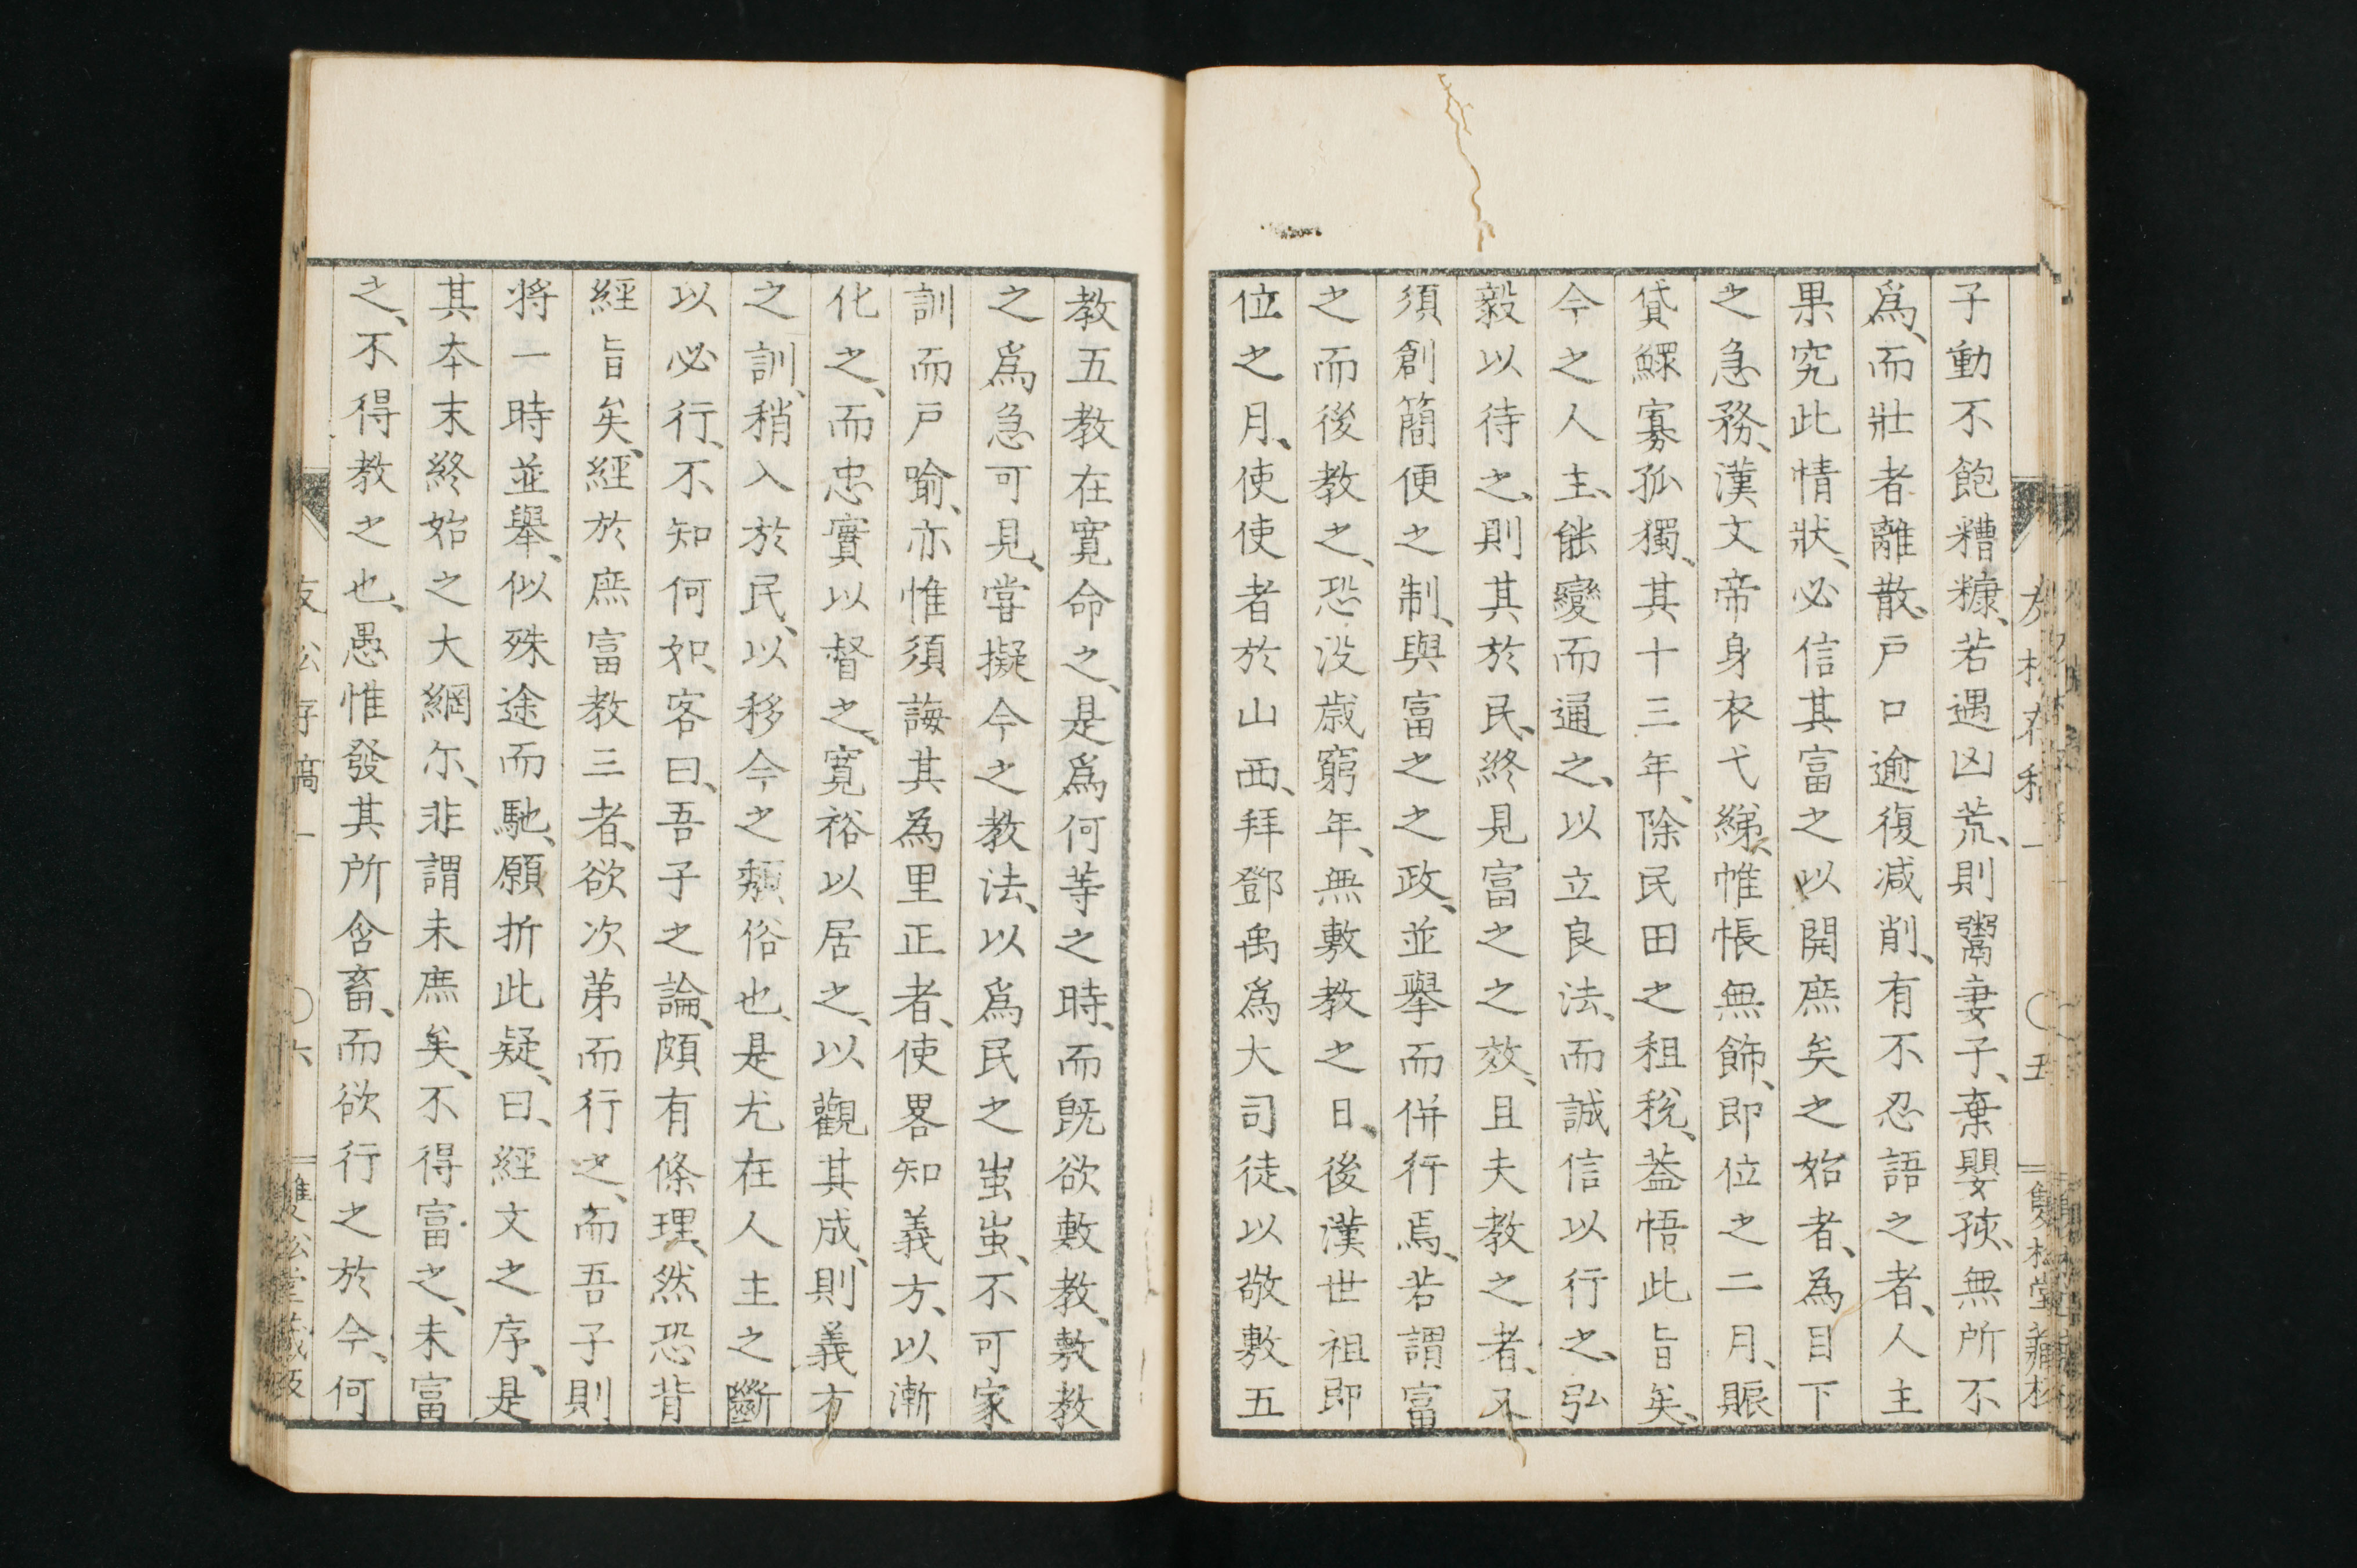 子動不飽糟糠、若遇凶荒、則鬻妻子、棄嬰孩、無所不
爲、而壯者離散、戸口逾復减削、有不忍語之者、人主
果究此情狀、必信其富之以開庶矣之始者、為目下
之急務、漢文帝身衣弋綈、帷帳無飾、即位之二月、賑
貸鰥寡孤獨、其十三年、除民田之租稅、葢悟此旨矣、
今之人主、能變而通之、以立良法、而誠信以行之、弘
毅以待之、則其於民、終見富之之效、且夫教之者、又
須創簡便之制、與富之之政、並擧而併行焉、若謂富
之而後教之、恐没歳窮年、無敷教之日、後漢世祖即
位之月、使使者於山西、拜鄧禹爲大司徒、以敬敷五
教五教在寛命之、是爲何等之時、而旣欲敷教、敷教
之爲急可見、嘗擬今之教法、以爲民之蚩蚩、不可家
訓而戸喩、亦惟須誨其為里正者、使畧知義方、以漸
化之、而忠實以督之、寛裕以居之、以觀其成、則義方
之訓、稍入於民、以移今之頽俗也、是尤在人主之斷
以必行、不知何如、客曰、吾子之論、頗有條理、然恐背
經旨矣、經於庶富教三者、欲次苐而行之、而吾子則
将一時並擧、似殊途而馳、願折此疑、曰、經文之序、是
其夲末終始之大綱尓、非謂未庶矣、不得富之、未富
之、不得教之也、愚惟發其所含畜、而欲行之於今、何
友松存稿一 〇六 雙松堂藏版